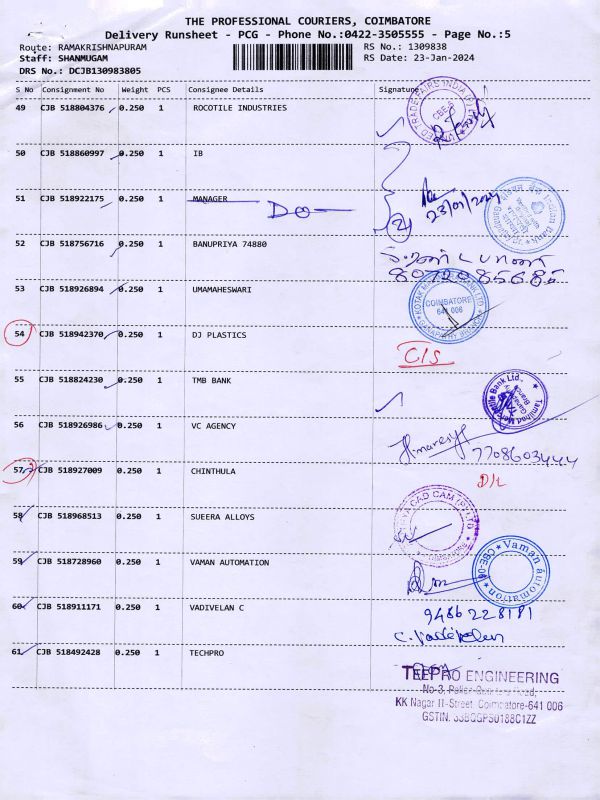 THE PROFESSIONAL COURIERS, COIMBATORE
Delivery Runsheet - PCG - Phone No.:0422-3505555 - Page No.:5
Route: RAMAKRISHNAPURAM RS No.: 1309838
Staff: SHANMUGAM RS Date: 23-Jan-2024
DRS No.: DCJB130983805
S No Consignment No Weight PCS Consignee Details Signature
49 CJB 518804376 0.250 1 ROCOTILE INDUSTRIES
50 CJB 518860997 0.250 1 IB
51 CJB 518922175 0.250 1 MANAGER
23/01/2024
52 CJB 518756716 0.250 1 BANUPRIYA 74880
8072085685
53 CJB 518926894 0.250 1 UMAMAHESWARI
COIMBATORE
641 006
54 CJB 518942370 0.250 1 DJ PLASTICS
C/S
55 CJB 518824230 0.250 1 TMB BANK
Tamilnad Mercantile Bank Ltd.
56 CJB 518926986 0.250 1 VC AGENCY
7708603444
57 CJB 518927009 0.250 1 CHINTHULA
D/L
58 CJB 518968513 0.250 1 SUEERA ALLOYS
CAD CAM (P) LTD
59 CJB 518728960 0.250 1 VAMAN AUTOMATION
Vaman automation
60 CJB 518911171 0.250 1 VADIVELAN C
9486228181
C. Vadivelan
61 CJB 518492428 0.250 1 TECHPRO
ENGINEERING
KK Nagar II-Street, Coimbatore-641 006